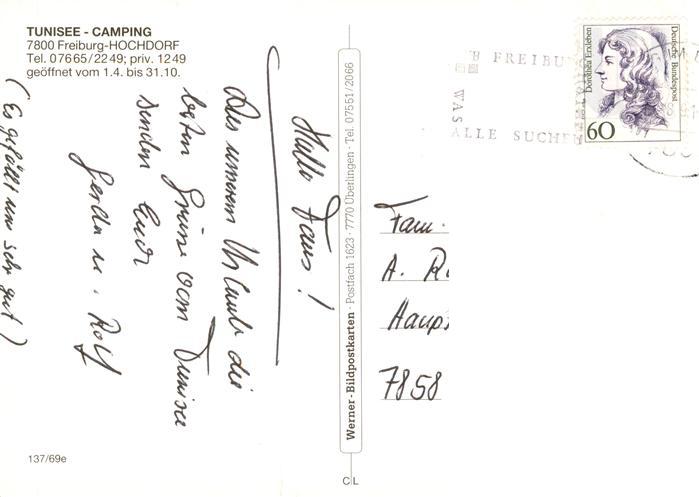 TUNISEE - CAMPING
7800 Freiburg-HOCHDORF
Tel. 07665/2249; priv. 1249
geöffnet vom 1.4. bis 31.10.
Hallo Fans!
Aus unserem Urlaub die
besten Grüsse vom Tunisee
senden Euch
Gerda u. Rolf
(Es gefällt uns sehr gut)
137/69e
Werner-Bildpostkarten · Postfach 1623 · 7770 Überlingen · Tel. 07551/2066
CL
B FREIBU
WAS
ALLE SUCHEN
Dorothea Erxleben
Deutsche Bundespost
60
Fam.
A. R
Haup
7858